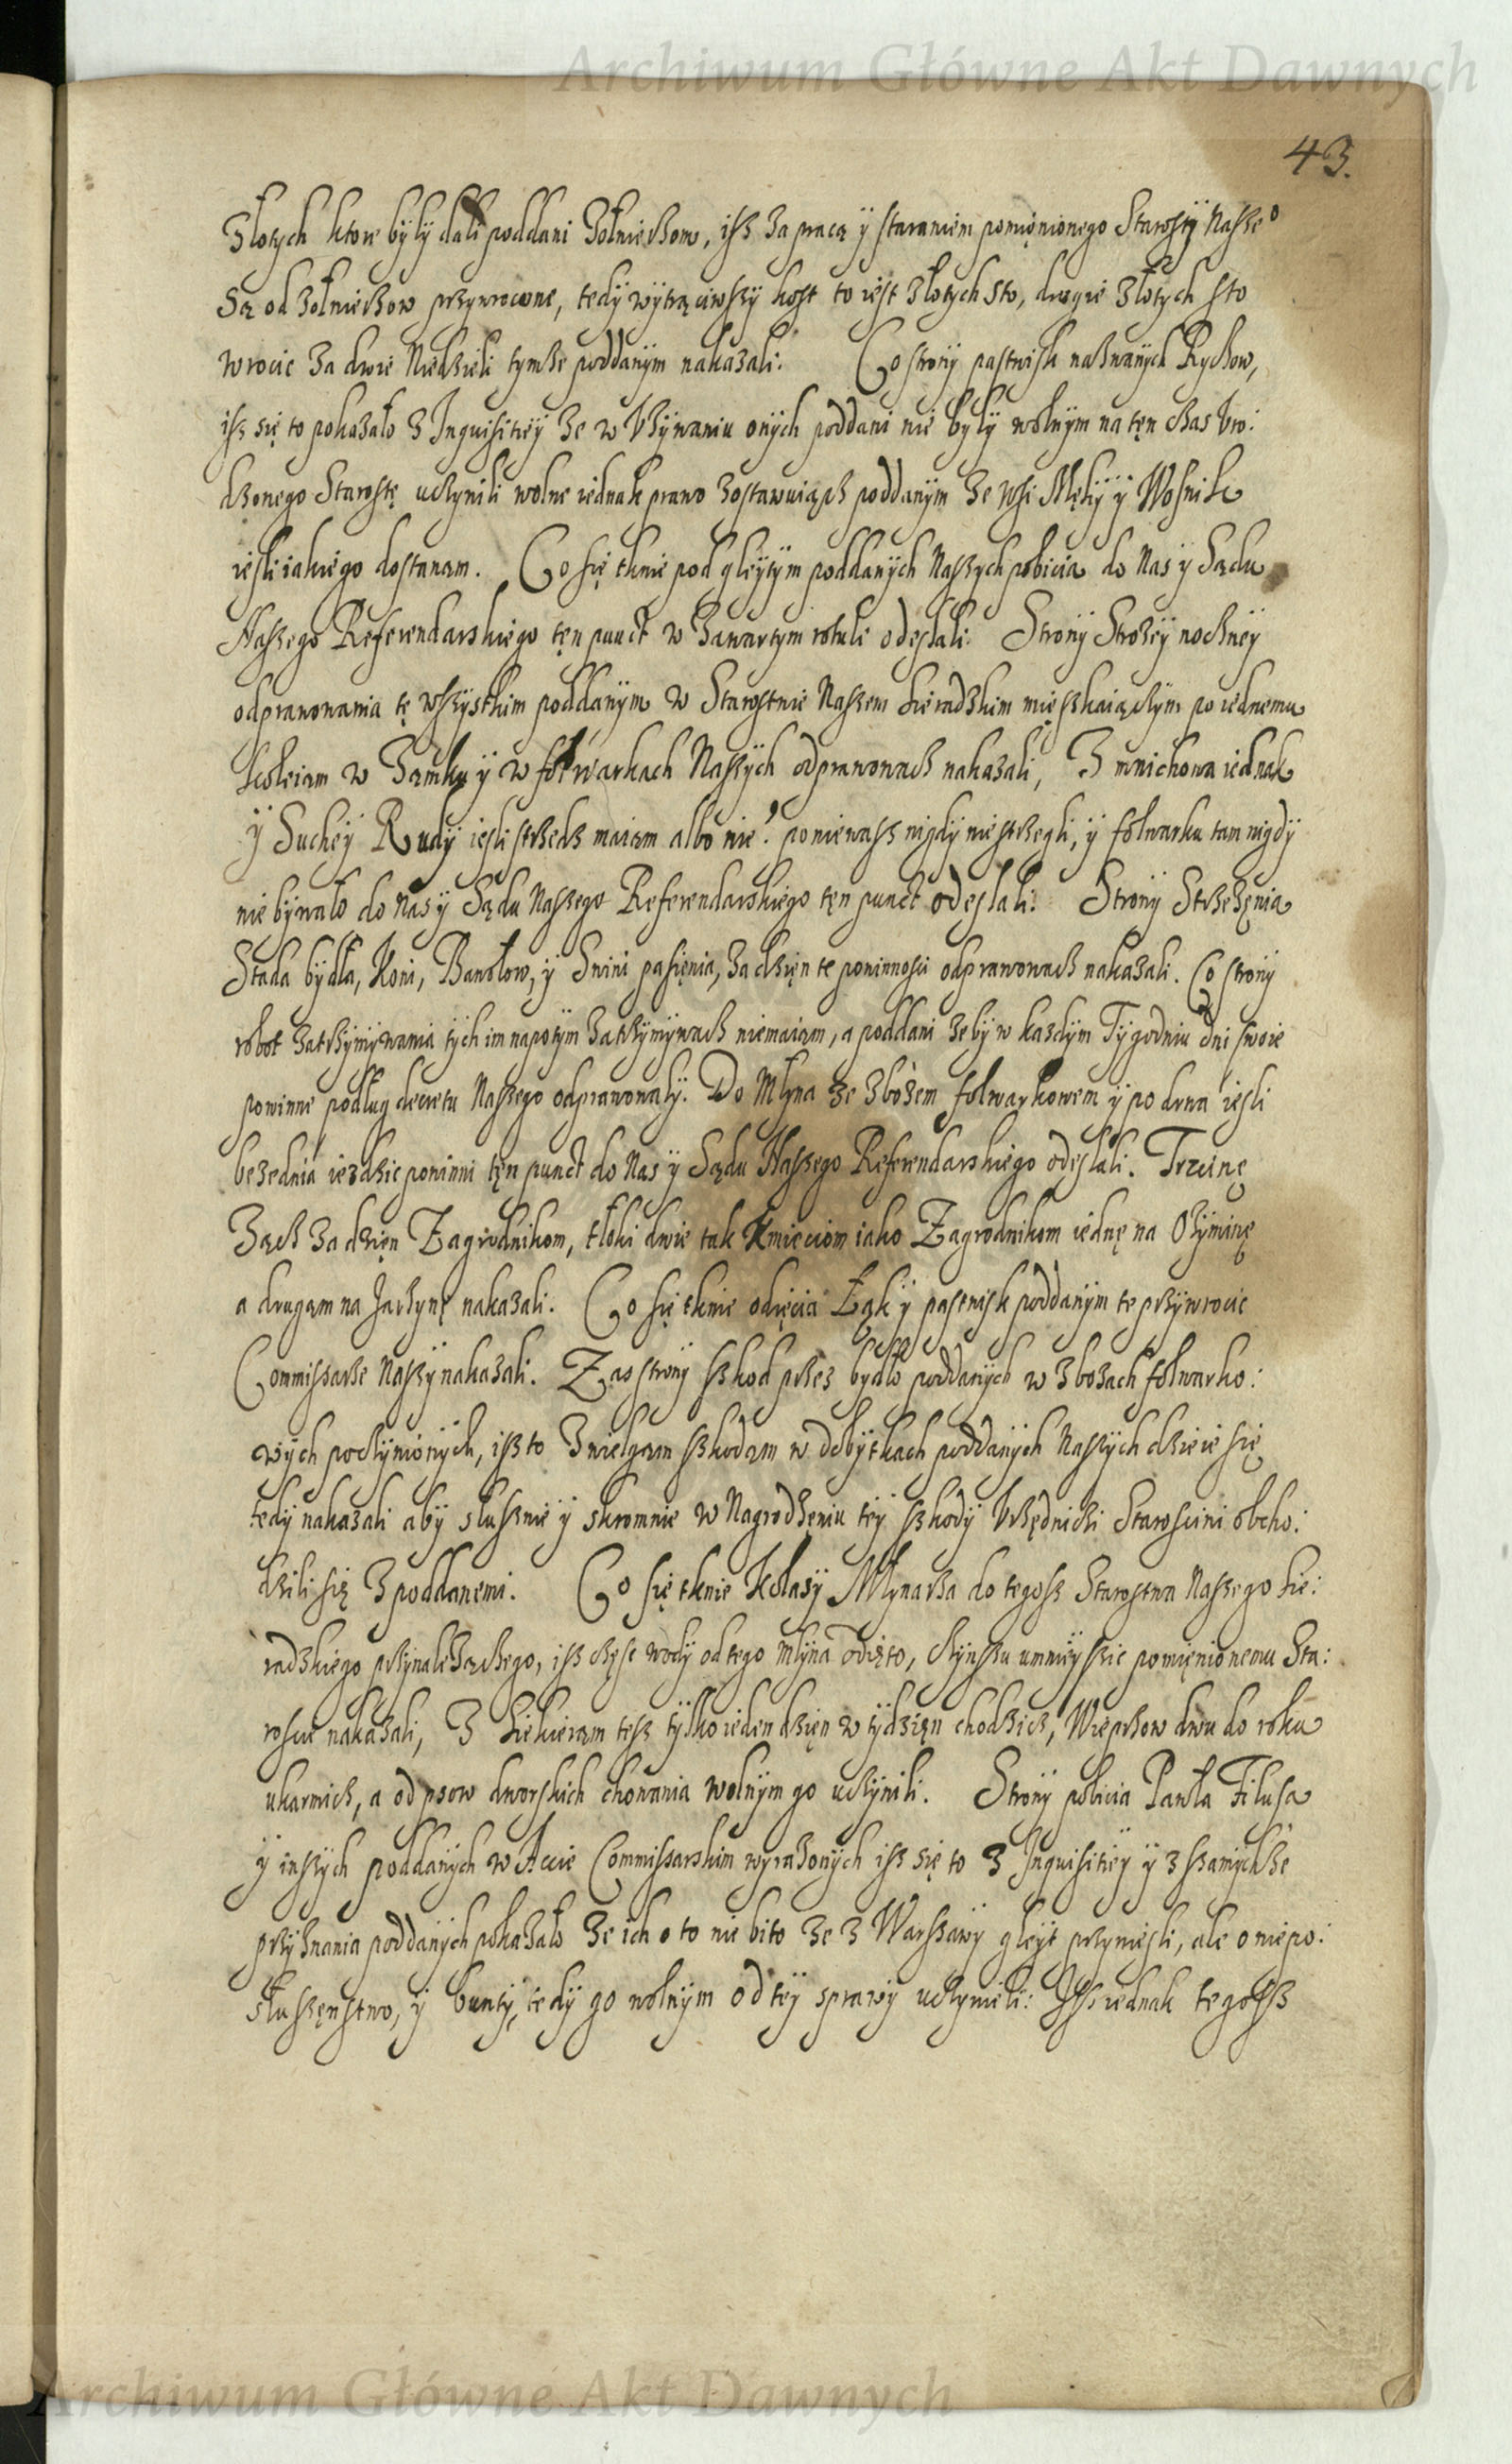 Archiwum Główne Akt Dawnych
43.
Złotych ktore były dali poddani Zołnierzom, isz za pracą y staraniem pomięnionego Starosty Nasze°
Są od zołnierzow przywrocone, tedy wytrąciwszy koszt to iest złotych sto, drugie złotych sto
wrocic za dwie Niedzieli tymże poddanym nakazali. Co strony pastwisk nazwanych Rychow,
isz się to pokazało z Inquisitiey że w Vżywaniu onych poddani nie były wolnym na tęn czas Vro:
dzonego Starostę uczynili wolne iednak prawo zostawuiącz poddanym ze wsi Męky y Wosnik
iesli iakiego dostanam. Co się tknie pod gleytym poddanych Naszych pobicia do Nas y Sądu
Naszego Referendarskiego tęn punct w zawartym rotule odesłali. Strony Strożey noczney
odprawowania tę wszystkim poddanym w Starostwie Naszem Sieradzkim mięszkaiączym po iednemu
koleiam w Zamku y w folwarkach Naszych odprawowacz nakazali, Z mnichowa iednak
y Suchey Rudy iesli strzedz maiam albo nie? poniewasz nigdy nie strzegli, y folwarku tam nigdy
nie bywało do Nas y Sądu Naszego Referendarskiego tęn punct odesłali. Strony Strzeżęnia
Stada bydła, Koni, Bawołow, y Swini pasięnia, za dzięn te powinnosci odprawowacz nakazali. Co strony
robot zatrzymywania tych im napotym zatrzymywacz niemaiam, a poddani żeby w każdym Tygodniu dni swoie
powinne podług decretu Naszego odprawowaly. Do Młyna ze zbożem folwarkowem y po drwa iesli
bezednia iezdzic powinni tęn punct do Nas y Sądu Naszego Referendarskiego odesłali. Trzcinę
Żącz za dzięn Zagrodnikom, tłoki dwie tak Kmieciom iako Zagrodnikom iednę na Ozyminę
a drugam na Jarzynę nakazali. Co się tknie odięcia Łąk y pastwisk poddanym te przywrocic
Commissarze Naszy nakazali. Zas strony szkod przez bydło poddanych w zbożach folwarko:
wych poczynionych, isz to z wielgam szkodam w dobytkach poddanych Naszych dzieie się
tedy nakazali aby słusznie y skromnie w Nagrodzęniu tey szkody Vrzędnicki Staroscini obcho:
dzili się z poddanemi. Co się tknie Kołasy Młynarza do tegosz Starostwa Naszego Sie:
radzkiego przynależączego, isz częsc wody od tego Młyna odięto, czynszu umnieyszic pomięnionemu Sta:
roscie nakazali, Z Siekieram tesz tylko ieden dzięn w tydzięn chodzicz, Wieprzow dwu do roku
ukarmicz, a od psow dworskich chowania wolnym go uczynili. Strony pobicia Pawła Filusa
y inszych poddanych w Accie Commissarskim wyrażonych isz się to z Inquisitiey y z samychże
przyznania poddanych pokazało że ich o to nie bito że z Warszawy gleyt przyniesli, ale o niepo:
słuszęnstwo, y bunty, tedy go wolnym od tey sprawy uczynieli: Isz iednak tegosz
Archiwum Główne Akt Dawnych